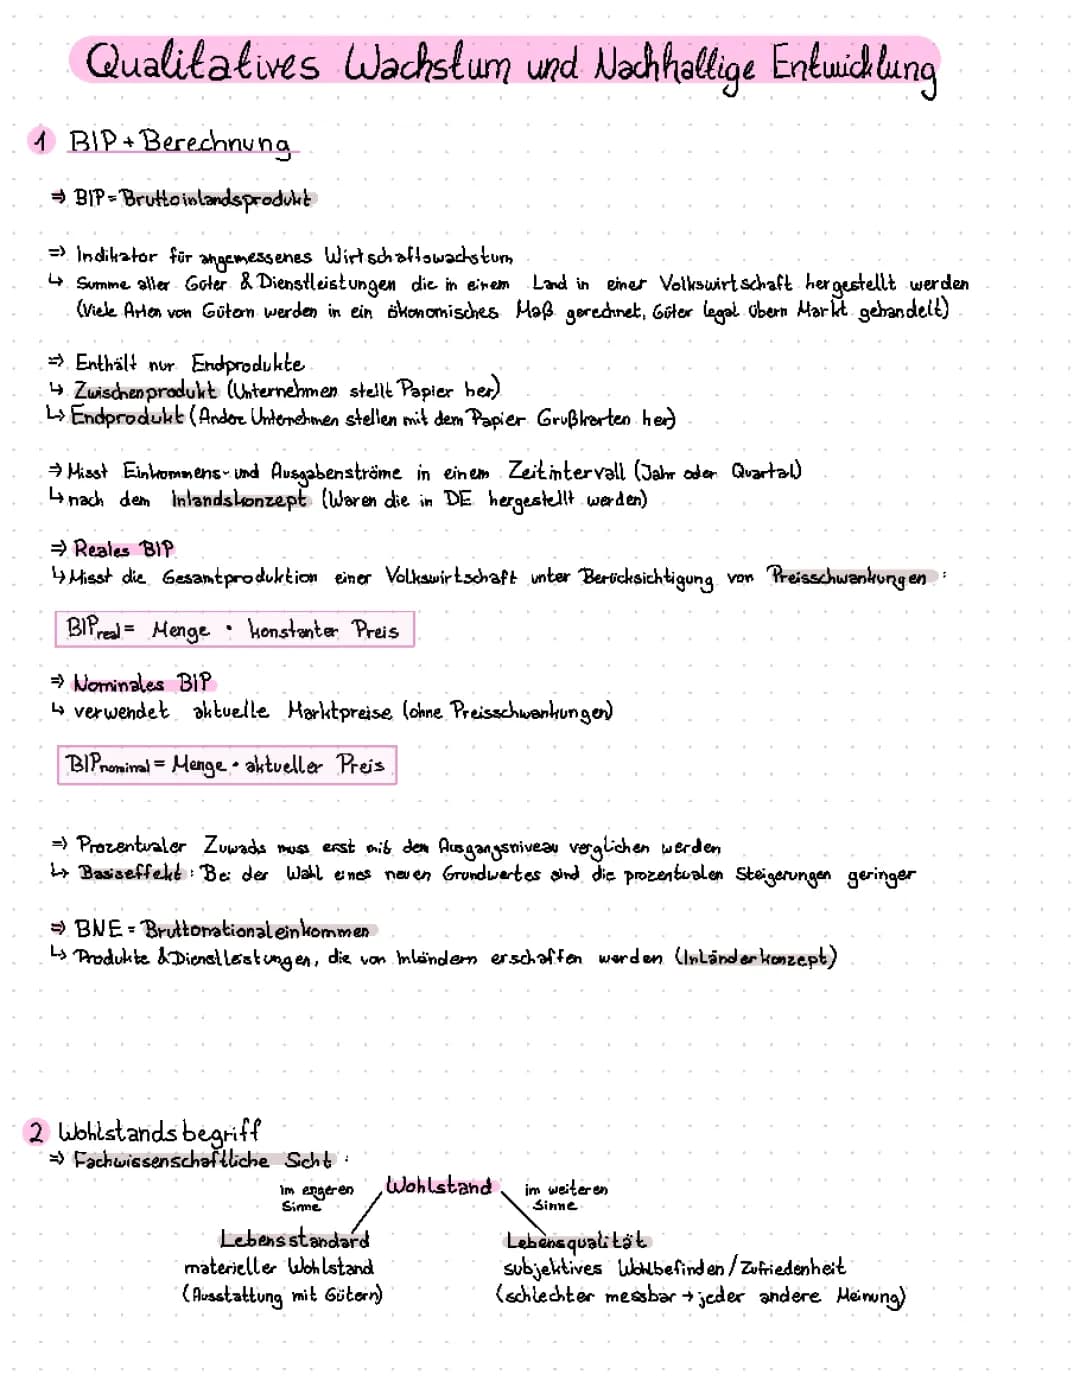 Qualitatives Wachstum und Nachhaltige Entwicklung
1 BIP + Berechnung
⇒ BIP = Bruttoinlandsprodukt
⇒ Indikator für angemessenes Wirtschaftswachstum
↳ Summe aller Güter & Dienstleistungen die in einem Land in einer Volkswirtschaft hergestellt werden
(Viele Arten von Gütern werden in ein ökonomisches Maß gerechnet, Güter legal übern Markt gehandelt)
⇒ Enthält nur Endprodukte
↳ Zwischenprodukt (Unternehmen stellt Papier her)
↳ Endprodukt (Andere Unternehmen stellen mit dem Papier Grußkarten her)
⇒ Misst Einkommens- und Ausgabenströme in einem Zeitintervall (Jahr oder Quartal)
↳ nach dem Inlandskonzept (Waren die in DE hergestellt werden)
⇒ Reales BIP
↳ Misst die Gesamtproduktion einer Volkswirtschaft unter Berücksichtigung von Preisschwankungen :
BIPreal = Menge · konstanter Preis
⇒ Nominales BIP
↳ verwendet aktuelle Marktpreise (ohne Preisschwankungen)
BIPnominal = Menge · aktueller Preis
⇒ Prozentualer Zuwachs muss erst mit dem Ausgangsniveau verglichen werden
↳ Basiseffekt : Bei der Wahl eines neuen Grundwertes sind die prozentualen Steigerungen geringer
⇒ BNE = Bruttonationaleinkommen
↳ Produkte & Dienstleistungen, die von Inländern erschaffen werden (Inländerkonzept)
2 Wohlstandsbegriff
⇒ Fachwissenschaftliche Sicht :
im engeren Sinne
Wohlstand
im weiteren Sinne
Lebensstandard
materieller Wohlstand
(Ausstattung mit Gütern)
Lebensqualität
subjektives Wohlbefinden / Zufriedenheit
(schlechter messbar → jeder andere Meinung)